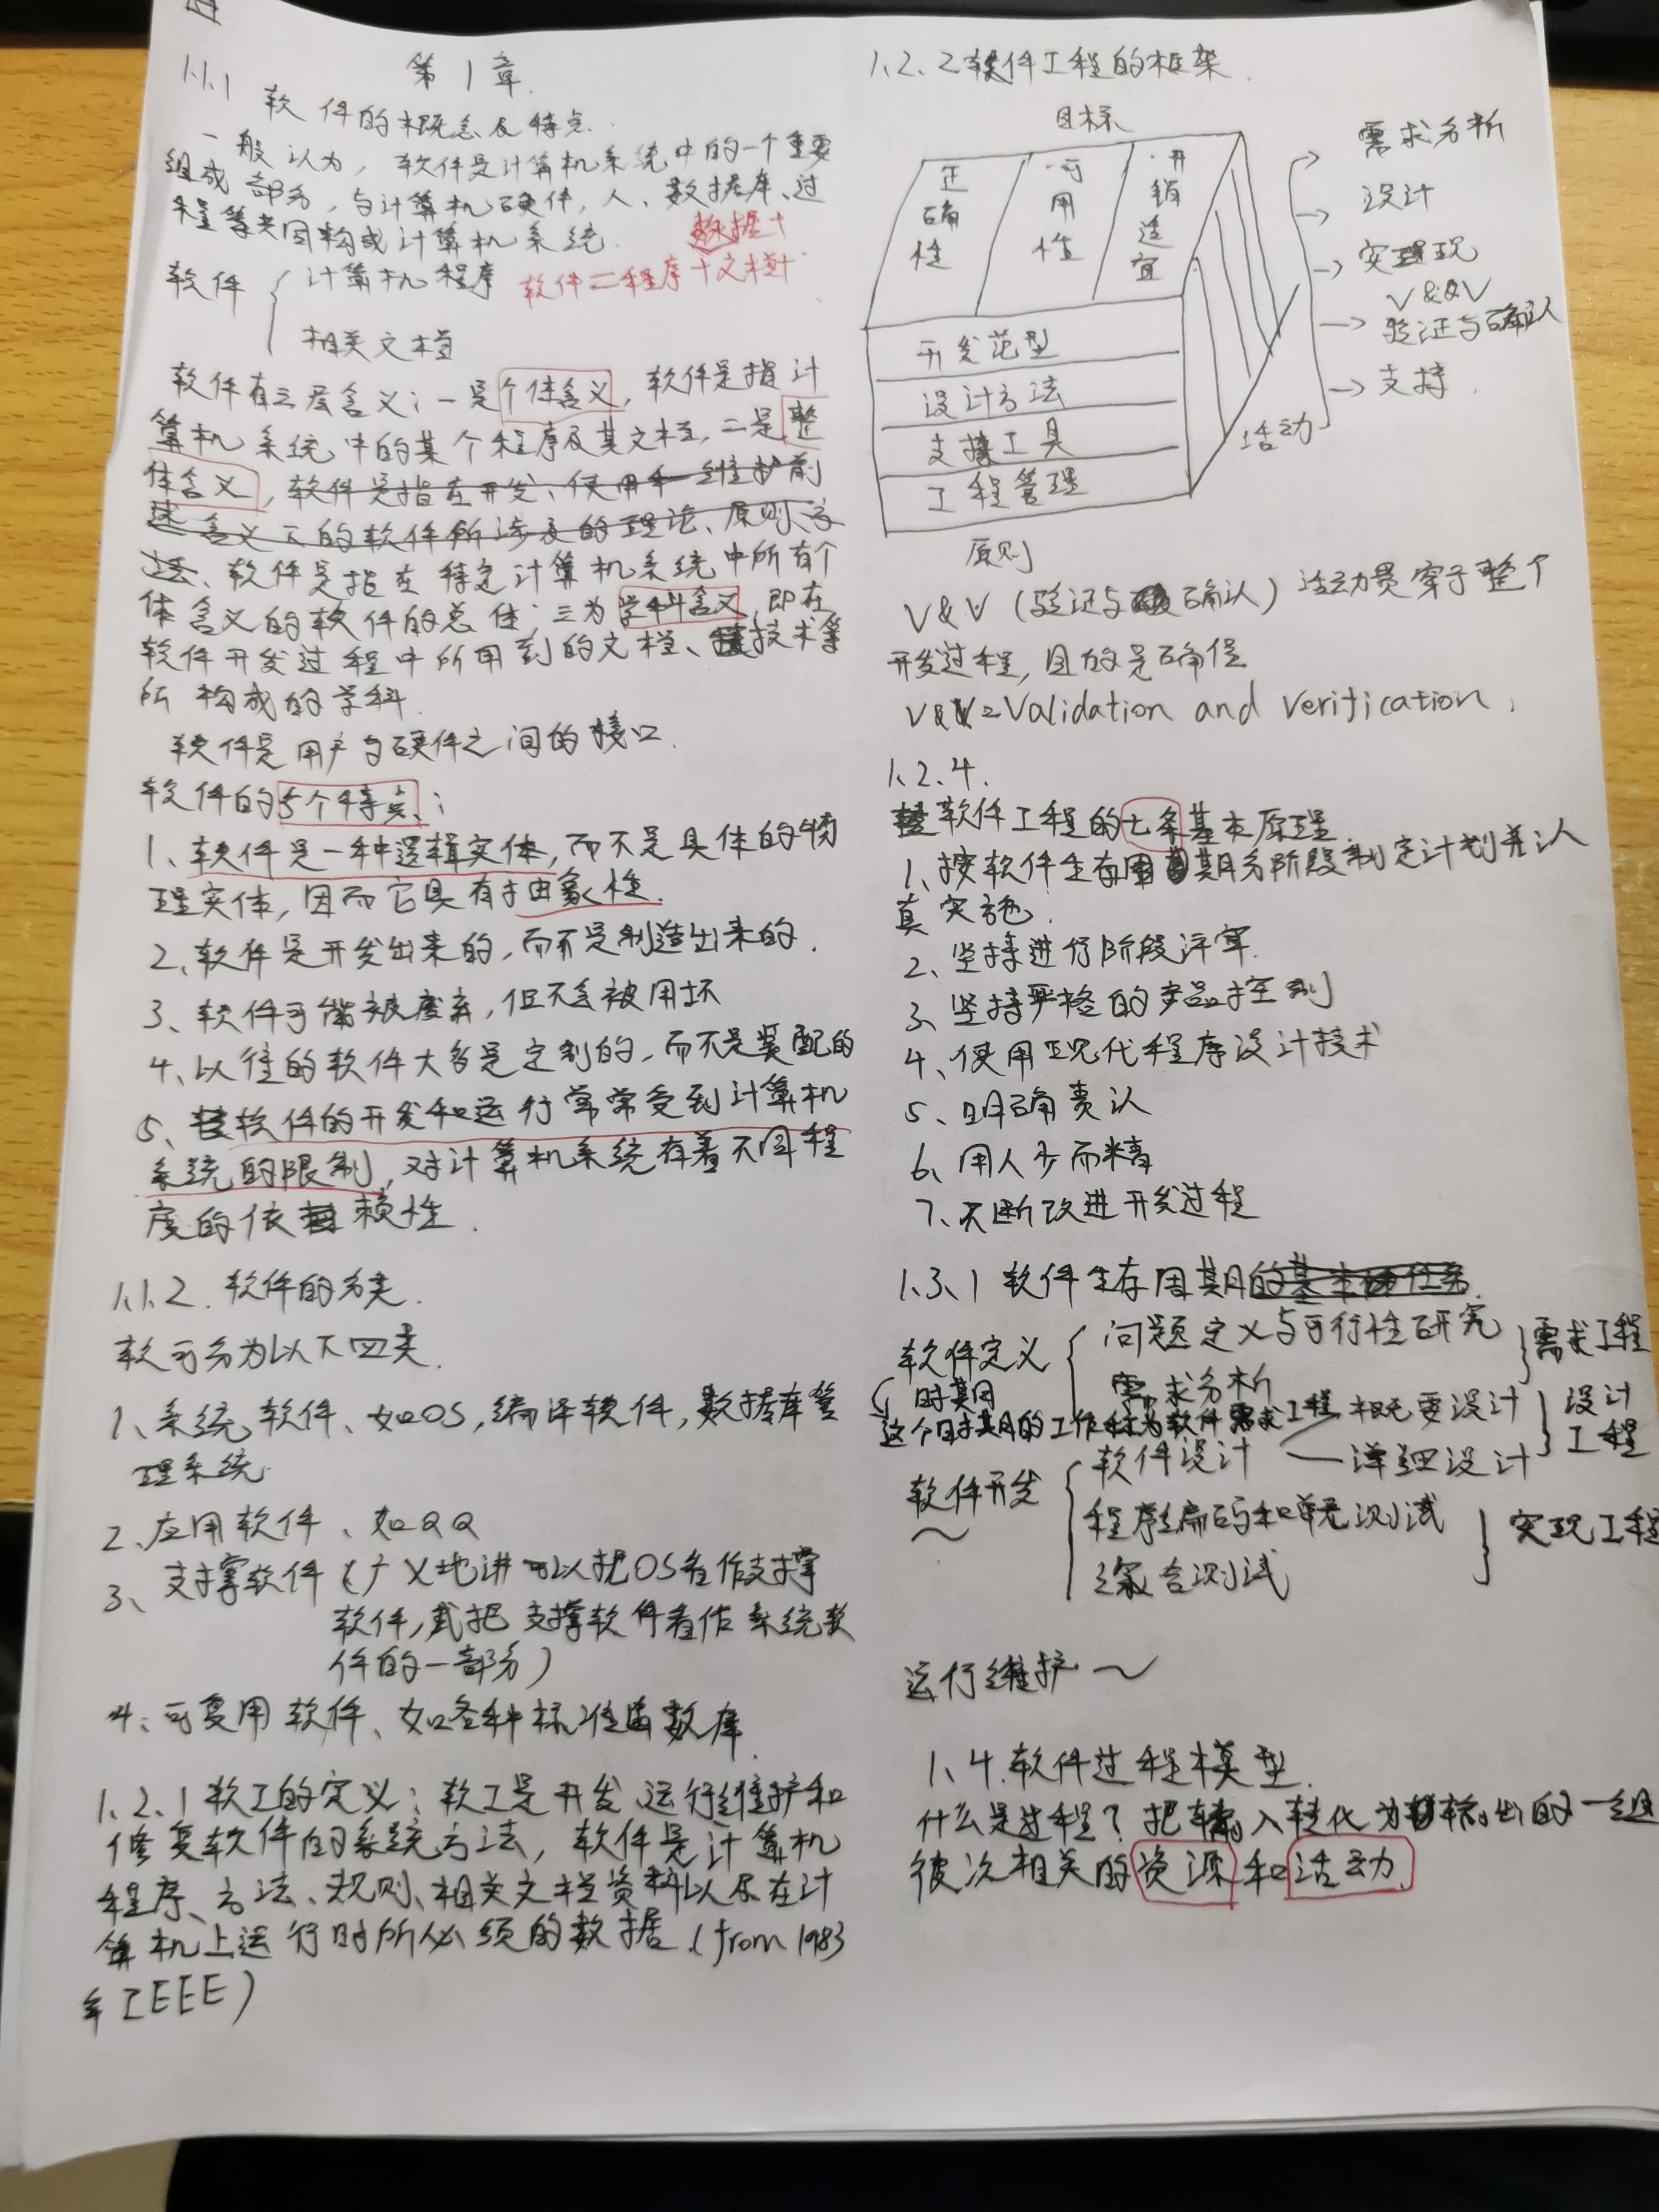 第1章
1.1.1 软件的概念及特点.
一般认为，软件是计算机系统中的一个重要
组成部分，与计算机硬件，人、数据库、过
程等共同构成计算机系统.
软件 { 计算机程序
相关文档
软件=程序+文档+
数据+
软件有三层含义：一是个体含义，软件是指计
算机系统中的某个程序及其文档，二是整
体含义，软件是指在开发、使用和维护前
述含义下的软件所涉及的理论、原则、方
法、软件是指在特定计算机系统中所有个
体含义的软件的总体；三为学科含义，即在
软件开发过程中所用到的文档、技术等
所构成的学科.
软件是用户与硬件之间的接口.
软件的5个特点：
1、软件是一种逻辑实体，而不是具体的物
理实体，因而它具有抽象性.
2、软件是开发出来的，而不是制造出来的.
3、软件可能被废弃，但不会被用坏
4、以往的软件大多是定制的，而不是装配的
5、软件的开发和运行常常受到计算机
系统的限制，对计算机系统有着不同程
度的依赖性.
1.1.2.软件的分类.
软可分为以下四类.
1、系统软件、如OS，编译软件，数据库管
理系统.
2、应用软件、如QQ
3、支撑软件(广义地讲可以把OS看作支撑
软件，或把支撑软件看作系统软
件的一部分)
4、可复用软件、如各种标准函数库.
1.2.1软工的定义：软工是开发、运行维护和
修复软件的系统方法，软件是计算机
程序、方法、规则、相关文档资料以及在计
算机上运行时所必须的数据.(from 1983
年IEEE)
1.2.2软件工程的框架.
目标
正确性
可用性
开销适宜
开发范型
设计方法
支撑工具
工程管理
原则
活动
→ 需求分析
→ 设计
→ 实现
V&V
→ 验证与确认
→ 支持.
V&V(验证与确认)活动贯穿于整个
开发过程，目的是确保
V&V=Validation and verification.
1.2.4.
软件工程的七条基本原理.
1、按软件生存周期分阶段制定计划并认
真实施.
2、坚持进行阶段评审.
3、坚持严格的产品控制
4、使用现代程序设计技术
5、明确责认
6、用人少而精
7、不断改进开发过程
1.3.1 软件生存周期的基本任务.
软件定义时期 { 问题定义与可行性研究
需求分析 } 需求工程
这个时期的工作称为软件需求工程
软件开发~ { 软件设计 概要设计
详细设计 } 设计工程
程序编码和单元测试
综合测试 } 实现工程
运行维护~
1.4.软件过程模型.
什么是过程？把输入转化为输出的一组
彼次相关的资源和活动.